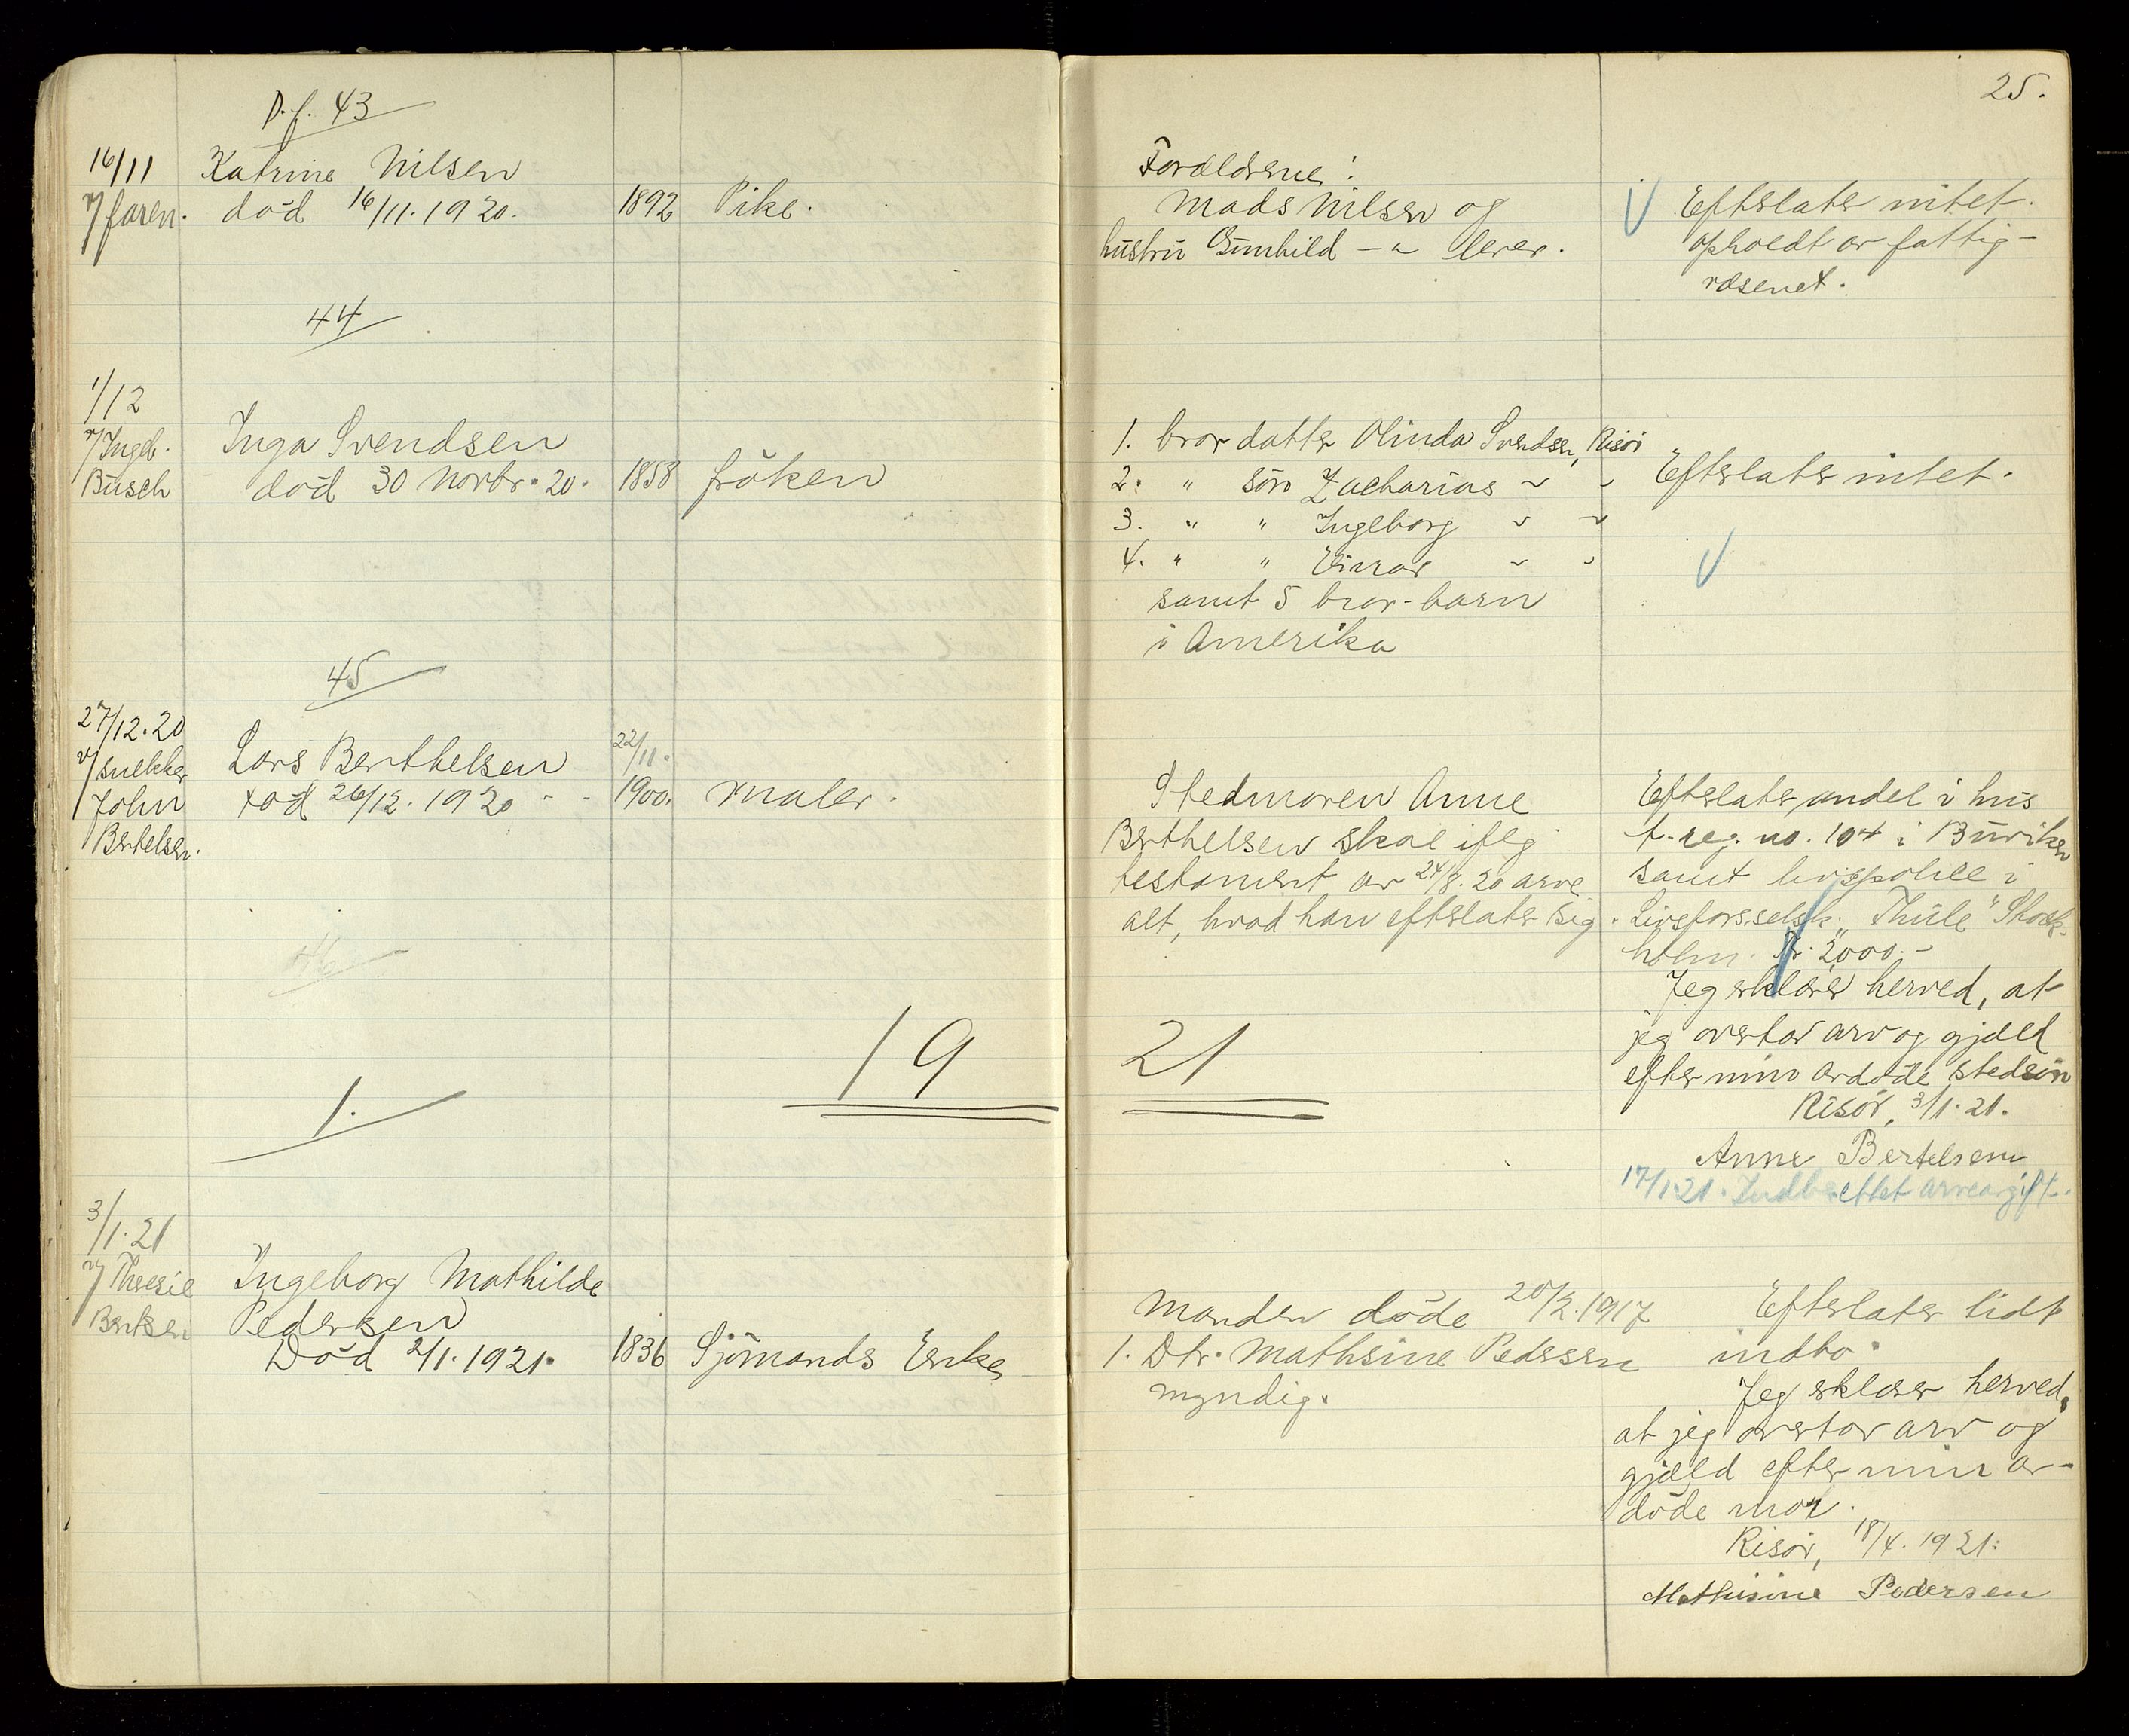 25.
D.f. 43
16/11 Katrine Nilsen
v/ faren. död 16/11.1920. 1892 Pike.
Forældrene:
Mads Nilsen og
hustru Gunhild — " lever.
Efterlater intet.
opholdt av fattig-
væsenet.
44
1/12
v/ Ingeb. Inga Svendsen
Busch död 30 Novbr. 20. 1858 fröken
1. bror datter Olinda Svendsen, Risör
2. " sön Zacharias " "
3. " " Ingeborg " "
4. " " Einar " "
samt 5 bror-barn
i Amerika
Efterlater intet.
45
27/12.20
v/ snekker Lars Berthelsen 22/11.
John död 26/12.1920 - - 1900. maler.
Bertelsen.
Stedmoren Anne
Berthelsen skal ifölg
testament av 24/8.20 arve
alt, hvad han efterlater sig.
Efterlater, andel i hus
t. reg. no. 104 i Buviken
samt livspolice i
Livsforsselsk. "Thule" Stock-
holm. Kr. 2000.-
Jeg erklærer herved, at
jeg overtar arv og gjæld
efter min avdöde stedsön
Risör, 3/1.21.
Anne Bertelsen
17/1.21. Indberettet arveavgift.
46
19 21
1.
3/1.21
v/ Ingeborg Mathilde
Berntsen Pedersen
Död 2/1.1921. 1836 Sjömands Enke
Manden döde 20/2.1917
1. Dtr. Mathsine Pedersen
myndig.
Efterlater lidt
indbo.
Jeg erklærer herved,
at jeg overtar arv og
gjæld efter min av-
döde mor.
Risör, 18/4.1921.
Mathisine Pedersen